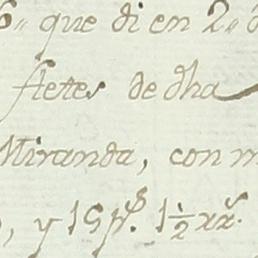 6,, que di en 2,,
fletes de dha
Miranda, con m
, y 15 p.s 1½ rx.